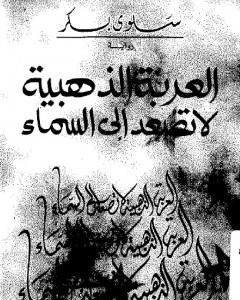 سلوى بكر
رواية
العربة الذهبية
لا تصعد إلى السماء
العربة الذهبية لا تصعد إلى السماء
العربة الذهبية لا تصعد إلى السماء
العربة الذهبية